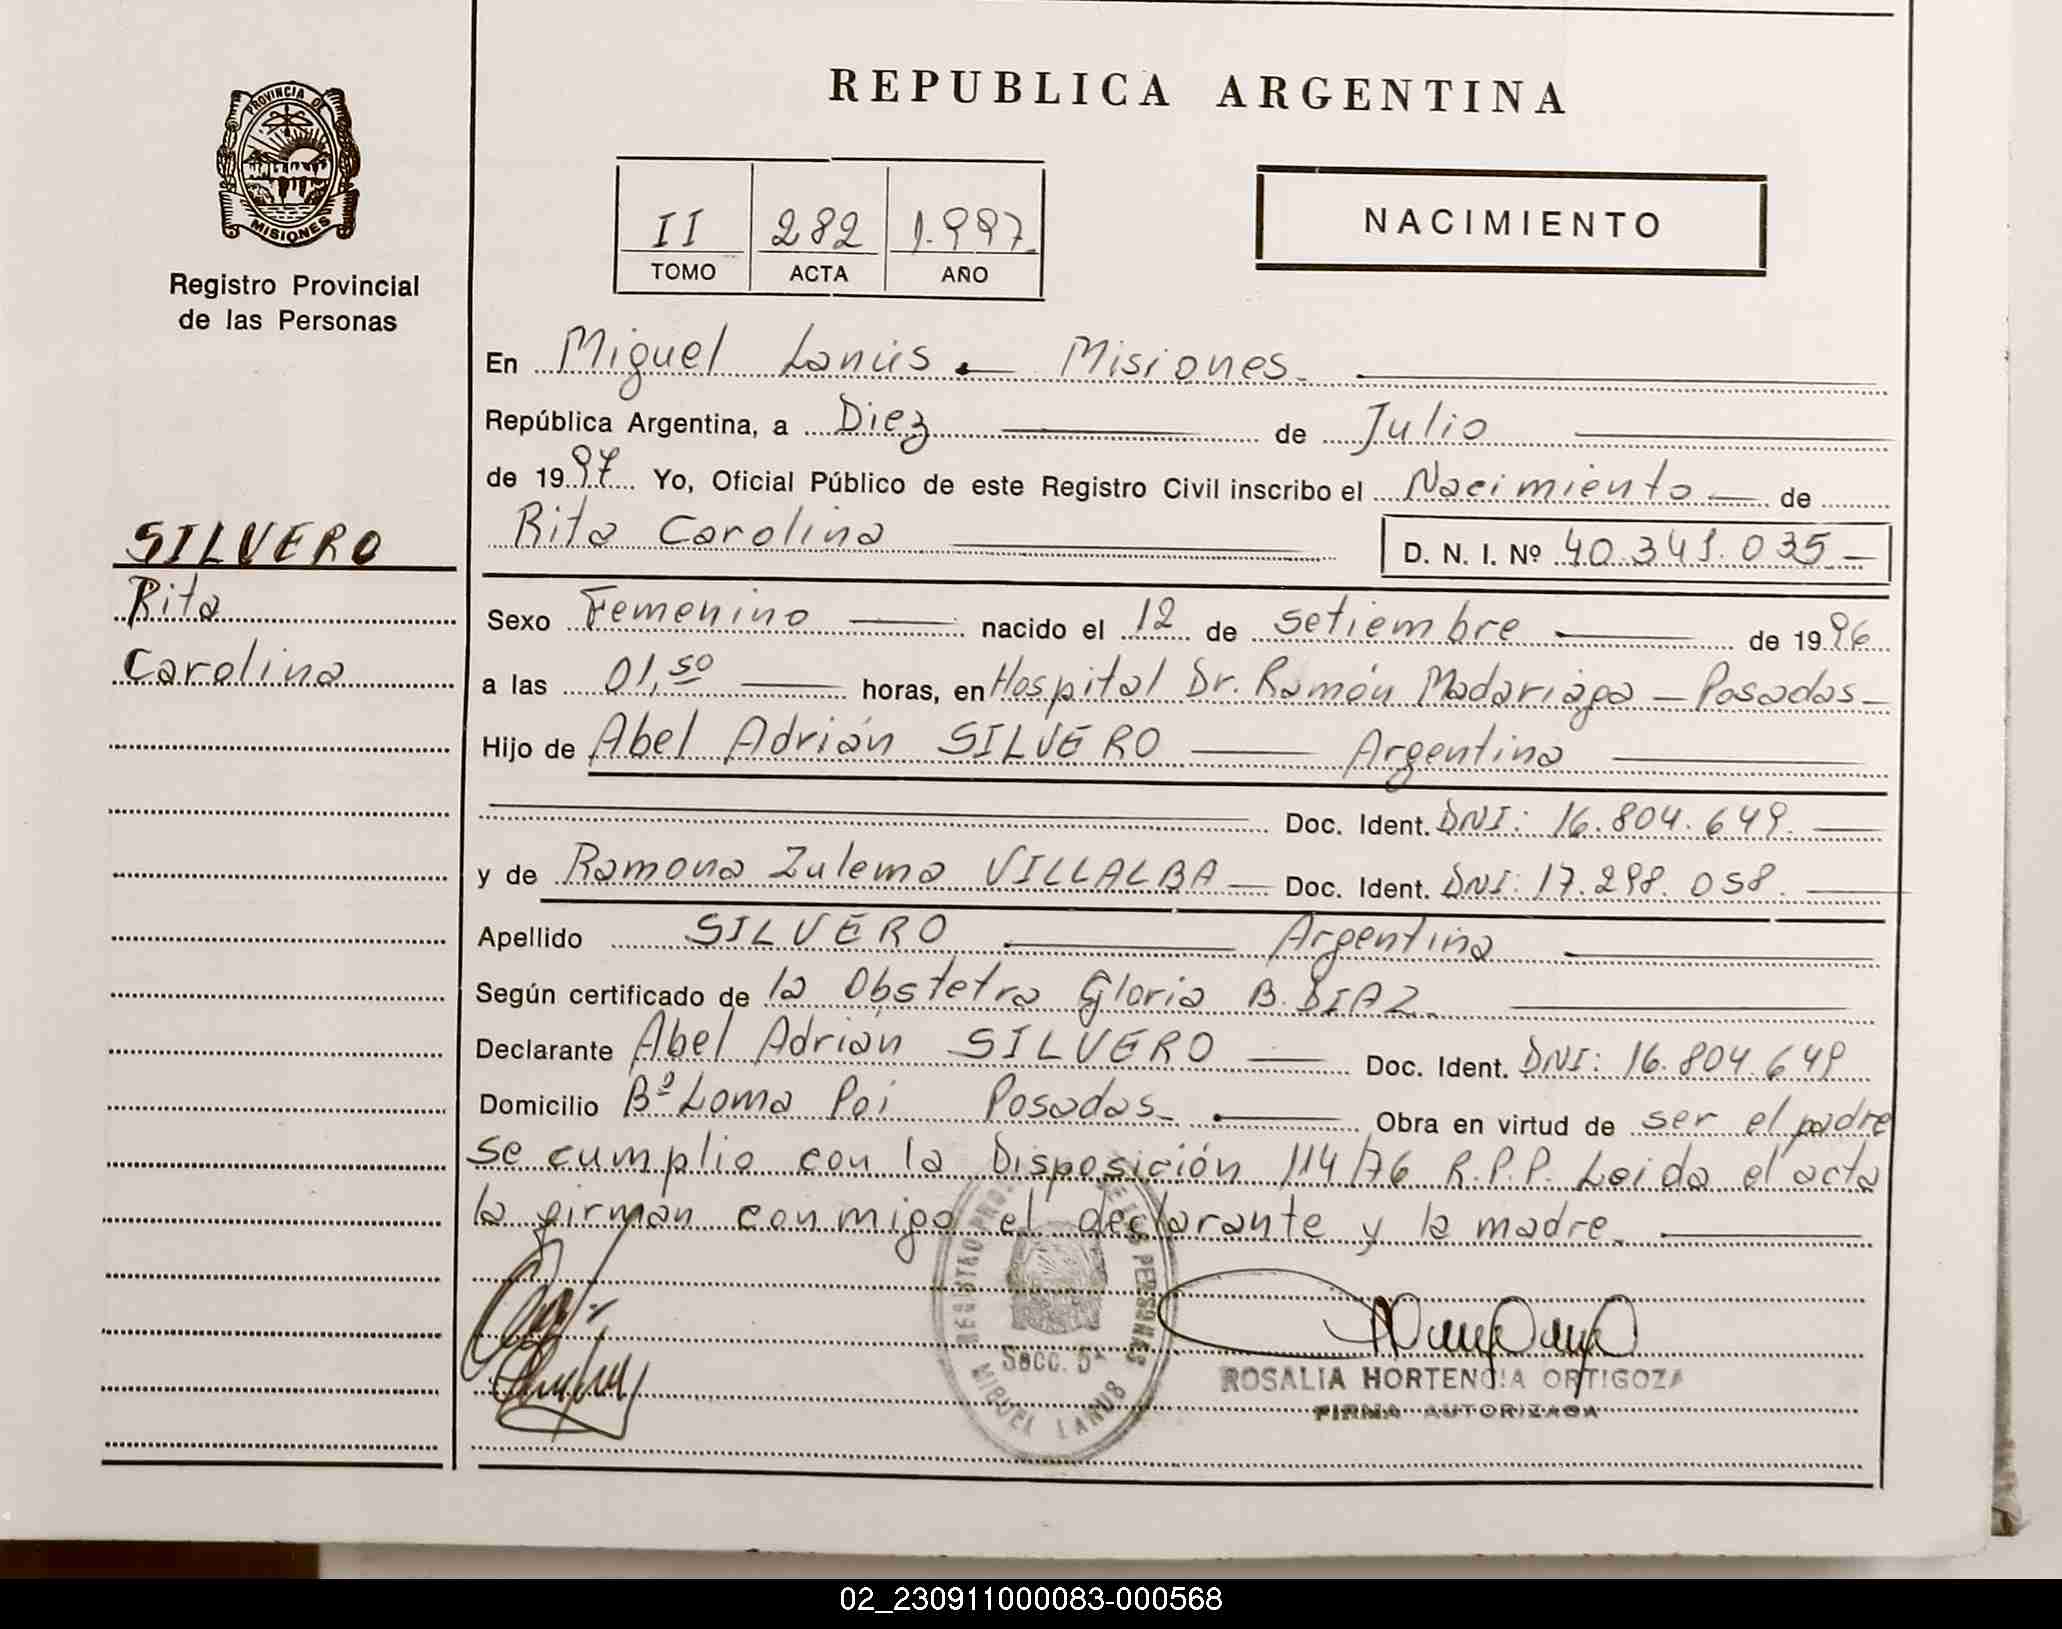 REPUBLICA ARGENTINA
PROVINCIA DE
MISIONES
Registro Provincial
de las Personas
II 282 1.997
TOMO ACTA AÑO
NACIMIENTO
En Miguel Lanús - Misiones
República Argentina, a Diez de Julio
de 1997 Yo, Oficial Público de este Registro Civil inscribo el Nacimiento de
Rita Carolina D. N. I. Nº 40.341.035
SILVERO
Rita
Carolina
Sexo Femenino nacido el 12 de setiembre de 1996
a las 01,50 horas, en Hospital Dr. Ramón Madariaga - Posadas
Hijo de Abel Adrián SILVERO Argentino
Doc. Ident. DNI: 16.804.649.
y de Ramona Zulema VILLALBA Doc. Ident. DNI: 17.298.058.
Apellido SILVERO Argentina
Según certificado de la Obstetra Gloria B. DIAZ
Declarante Abel Adrián SILVERO Doc. Ident. DNI: 16.804.649
Domicilio Bº Loma Poi Posadas Obra en virtud de ser el padre
se cumplio con la Disposición 114/76 R.P.P. Leida el acta
la firman conmigo el declarante y la madre
REGISTRO PRO. DE LAS PERSONAS
Secc. 5ª
MIGUEL LANUS
ROSALIA HORTENCIA ORTIGOZA
FIRMA AUTORIZADA
02_230911000083-000568